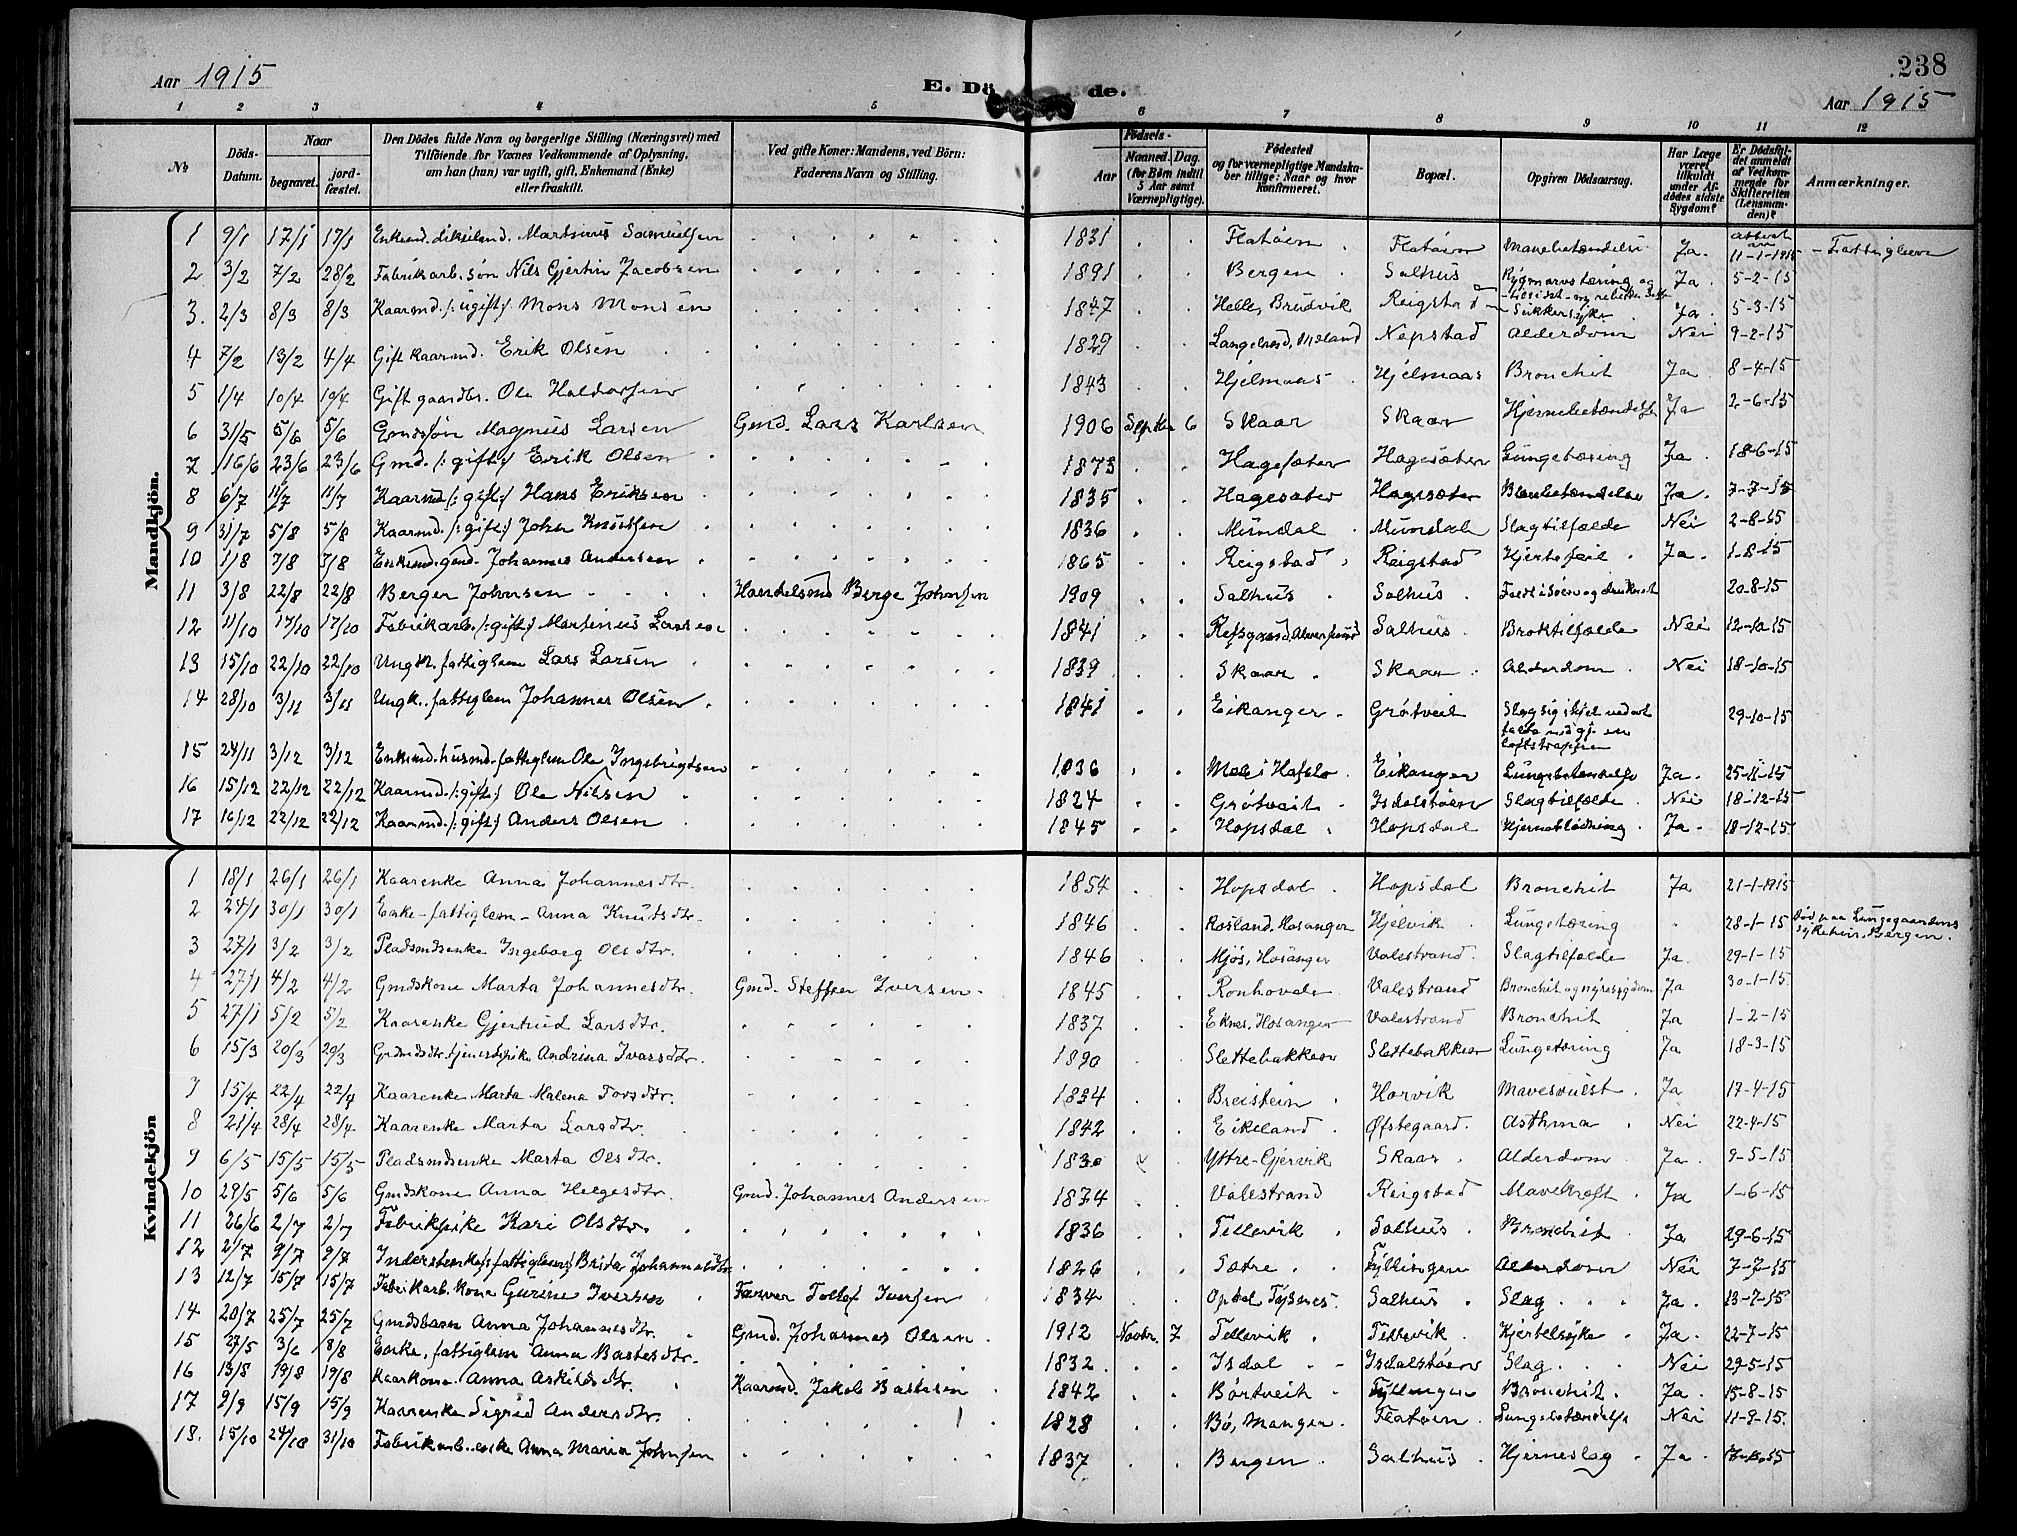 238
Aar 1915
E. Döde.
Aar 1915
1 2 3 4 5 6 7 8 9 10 11 12
№
Döds-Datum.
Naar
begravet.
jordfæstet.
Den Dödes fulde Navn og borgerlige Stilling (Næringsvei) med Tilföiende for Voxnes Vedkommende af Oplysning, om han (hun) var ugift, gift, Enkemand (Enke) eller fraskilt.
Ved gifte Koner: Mandens, ved Börn: Faderens Navn og Stilling.
Födsels-
Aar
Maaned. Dag.
(for Börn indtil 5 Aar samt Værnepligtige).
Födested og for værnepligtige Mandskaber tillige: Naar og hvor konfirmeret.
Bopæl.
Opgiven Dödsaarsag.
Har Læge været tilkaldt under Afdödes sidste Sygdom?
Er Dödsfaldet anmeldt af Vedkommende for Skifteretten (Lensmanden)?
Anmærkninger.
Mandkjön.
1 9/1 17/1 17/1 Martinus Samuelsen 1831 Flatøen Flatøen Ja. 11-1-1915 - Fattiglem
2 3/2 7/2 28/2 Fabrikarb. søn Nils Gjertin Jacobsen 1891 Bergen Salhus Rygmarvstæring og Ja 5-2-15
3. 2/3 8/3 8/3 Kaarmd. /:ugift:/ Mons Monsen 1847 Helle, Bruvik Reigstad Sukkersyke Ja 5-3-15
4 7/2 13/2 4/4 Gift kaarmd. Erik Olsen 1829 Nepstad Alderdom Nei 9-2-15
5 1/4 10/4 10/4 Gift gaardbr. Ole Haldorsen 1843 Hjelmaas Hjelmaas Bronchit Ja 8-4-15
6 31/5 5/6 5/6 Gmdssøn Magnus Larsen Gmd. Lars Karlsen 1906 Septbr 6 Skaar Skaar Hjernebetændelse Ja 2-6-15
7 16/6 23/6 23/6 Gmd. /:gift:/ Erik Olsen 1873 Hagesæter Hagesæter Lungetæring Ja 18-6-15
8 6/7 11/7 11/7 Kaarmd. /:gift:/ Hans Eriksen 1835 Hagesæter Hagesæter Ja. 7-7-15
9 31/7 5/8 5/8 Kaarmd. /:gift:/ John Knutsen 1836 Mundal Mundal Slagtilfælde Nei 2-8-15
10 1/8 7/8 7/8 Enkemd. gmd. Johannes Andersen 1865 Reigstad Reigstad Hjertefeil Ja. 1-8-15
11 3/8 22/8 22/8 Berger Johnsen Handelsmd Berge Johnsen 1909 Salhus Salhus. Faldt i søen og druknet 20-8-15
12 11/10 17/10 17/10 Fabrikarb. /:gift:/ Martinus Larsen 1841 Salhus. Broktilfælde Nei 12-10-15
13 15/10 22/10 22/10 Ungk. fattiglem Lars Larsen 1839 Skaar Skaar Alderdom Nei 18-10-15
14 28/10 3/11 3/11 Ungk. fattiglem Johannes Olsen 1841 Eikanger Grøtveit Slog sig ihjel ved at falde ned gj. en loftstrappen 29-10-15
15 24/11 3/12 3/12 Enkemd. husmd. fattiglem Ole Ingebrigtsen 1836 Mæl i Hafslo Eikanger Lungebetændelse Ja. 25-11-15
16 15/12 22/12 22/12 Kaarmd. /:gift:/ Ole Nilsen 1824 Grøtveit Isdalstøen Slagtilfælde Nei 18-12-15
17 16/12 22/12 22/12 Kaarmd. /:gift:/ Anders Olsen 1845 Hopsdal Hopsdal Hjerneblødning Ja. 18-12-15
Kvindekjön
1 18/1 26/1 26/1 Kaarenke Anna Johannesdtr. 1854 Hopsdal Hopsdal Bronchit Ja 21-1-1915
2 24/1 30/1 30/1 Enke-fattiglem-Anna Knutsdtr. 1846 Rosland, Hosanger Hjelvik Lungetæring 28-1-15 Død paa Lungegaardens sykehus, Bergen.
3 27/1 3/2 3/2 Pladsmdsenke Ingeborg Olsdtr. 1846 Mjøs, Hosanger Valestrand. Slagtilfælde Ja. 29-1-15
4 27/1 4/2 4/2 Gmdskone Marta Johannesdtr. Gmd. Steffen Iversen 1845 Ronhovde Valestrand Bronchit og nyresygdom Ja 30-1-15
5 27/1 5/2 5/2 Kaarenke Gjertrud Larsdtr. 1837 Eknes, Hosanger Valestrand Bronchit Ja 1-2-15
6 15/3 20/3 20/3 Gmdsdtr. tjenestepike Andrina Ivarsdtr. 1890 Slettebakken Slettebakken Lungetæring Ja 18-3-15
7 15/4 22/4 22/4 Kaarenke Marta Malena Torsdtr. 1834 Breistein Horvik Mavesvulst Ja 17-4-15
8 21/4 28/4 28/4 Kaarenke Marta Larsdtr. 1842 Eikeland Øfstegaard. Asthma Nei 22-4-15
9 6/5 15/5 15/5 Pladsmdsenke Marta Olsdtr. 1830 Yttre-Gjervik Skaar Alderdom Ja. 9-5-15
10 29/5 5/6 5/6 Gmdskone Anna Helgesdtr. Gmd. Johannes Andersen 1874 Valestrand Reigstad Mavekræft Ja 1-6-15
11 26/6 2/7 2/7 Fabrikpike Kari Olsdtr. 1836 Tellevik Salhus Bronchit Ja 29-6-15
12 2/7 9/7 9/7 Inderstenke /:fattiglem:/ Brita Johannesdtr. 1826 Sætre Fyllingen Alderdom Nei 7-7-15
13 12/7 15/7 15/7 Fabrikarb. kone Gurine Iversen Farver Tollef Iversen 1834 Opdal Tysnes. Salhus Slag Ja. 13-7-15
14 20/7 25/7 25/7 Gmdsbarn Anna Johannesdtr. Gmd. Johannes Olsen 1912 Novbr. 7 Tellevik Tellevik. Kjertelsyke Ja. 22-7-15
15 27/5 3/6 8/8 Enke, fattiglem Anna Bastesdtr. 1832 Isdal Isdalstøen Slag Nei 29-5-15
16 13/8 19/8 19/8 Kaarkone Anna Askildsdtr. Kaarmd. Jakob Bastesen 1842 Børtveit Fyllingen Bronchit. Ja. 15-8-15
17 9/9 15/9 15/9 Kaarenke Sigrid Andersdtr. 1828 Bø, Manger Flatøen Lungebetændelse Nei 11-9-15.
18. 15/10 24/10 31/10 Fabrikarb. enke Anna Maria Johnsen 1837 Bergen Salhus Hjerneslag Ja